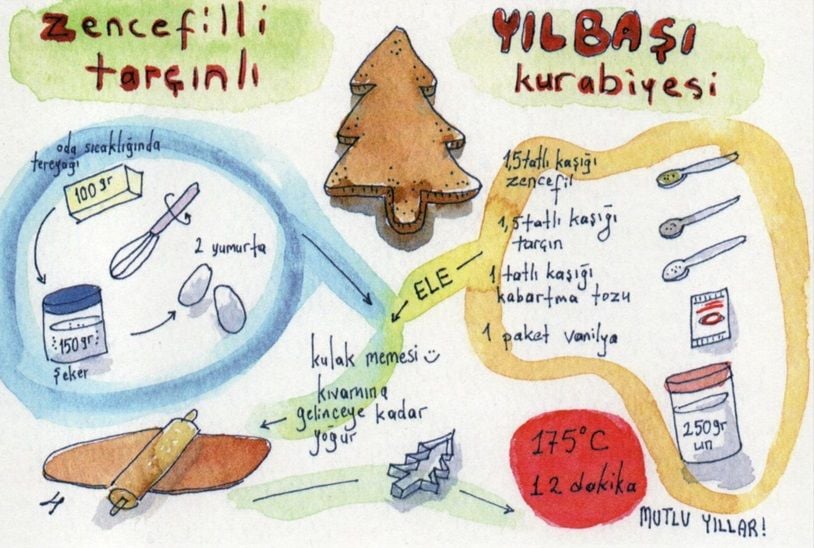 zencefilli
tarçınlı
YILBAŞI
kurabiyesi
oda sıcaklığında
tereyağı
100 gr
2 yumurta
150 gr
şeker
ELE
1,5 tatlı kaşığı
zencefil
1,5 tatlı kaşığı
tarçın
1 tatlı kaşığı
kabartma tozu
1 paket vanilya
250 gr
un
kulak memesi
kıvamına
gelinceye kadar
yoğur
175°C
12 dakika
MUTLU YILLAR!